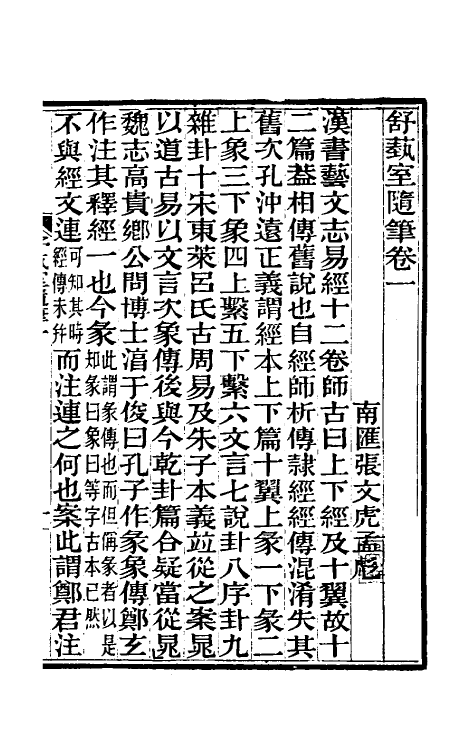 舒蓺室隨筆卷一
南匯張文虎孟彪
漢書藝文志易經十二卷師古曰上下經及十翼故十
二篇葢相傳舊說也自經師析傳隷經經傳混淆失其
舊次孔沖遠正義謂經本上下篇十翼上彖一下彖二
上象三下象四上繫五下繫六文言七說卦八序卦九
雜卦十宋東萊呂氏古周易及朱子本義竝從之案晁
以道古易以文言次象傳後與今乾卦篇合疑當從晁
魏志高貴鄉公問博士淯于俊曰孔子作彖象傳鄭玄
作注其釋經一也今彖此謂彖傳也而但偁彖者以是知彖曰象曰等字古本已然
不與經文連可知其時經傳未幷而注連之何也案此謂鄭君注